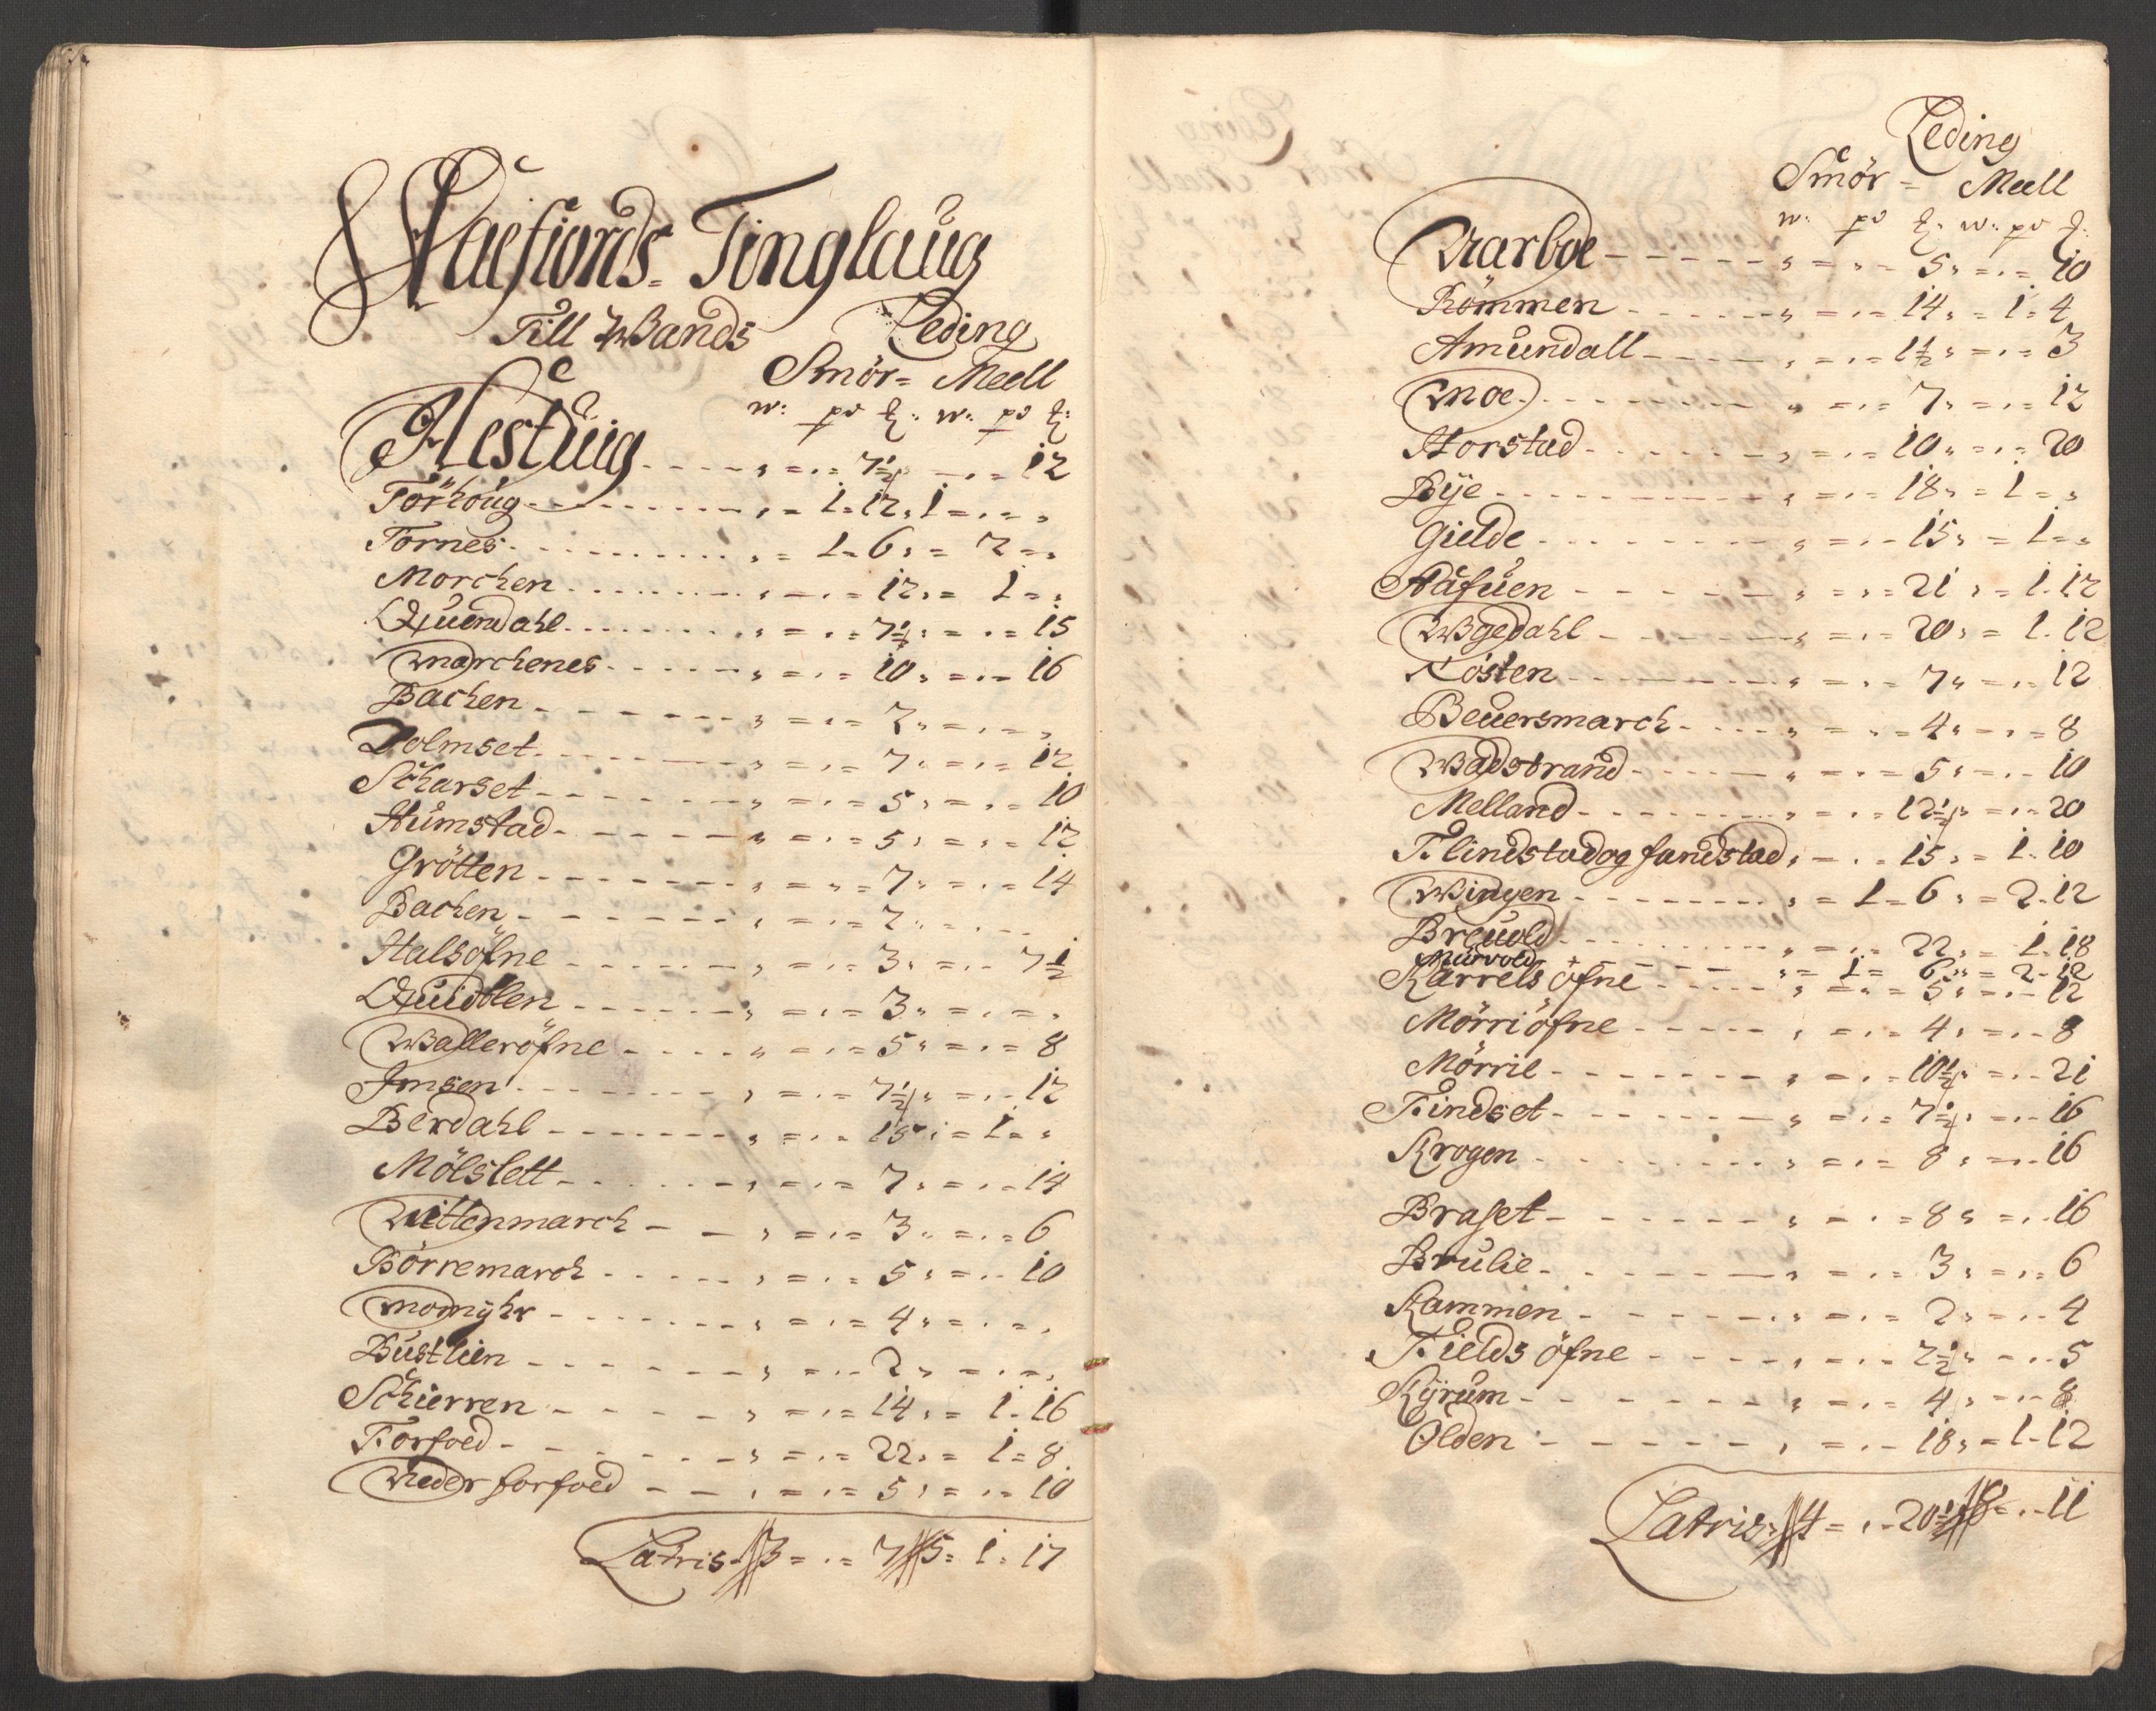 Aaefiords Tinglaug
Till Wands Leding
Smör= Meell
w: pd ₶: w: pd ₶:
Hestuig - - - - „ = „ = 7½ „ — „ = 12
Törhoug - - - - „ = 1 = 12 „ 1 = „ = „
Törnes - - - - „ = 1 = 6 „ = 2 = „
Morchen - - - - „ = „ = 12 „ = 1 = „
Quendahl - - - - „ = „ = 7½ „ = „ = 15
Marchenes - - - - „ = „ = 10 „ = „ = 16
Bachen - - - - „ = „ = 2 „ = „ = „
Dolmset - - - - „ = „ = 7 „ = „ = 12
Scharset - - - - „ = „ = 5 „ = „ = 10
Humstad - - - - „ = „ = 5 „ = „ = 12
Grötten - - - - „ = „ = 7 „ = „ = 14
Bachen - - - - „ = „ = 2 „ = „ = „
Halsöfne - - - - „ = „ = 3 „ = „ = 7½
Quidtlen - - - - „ = „ = 3 „ = „ = „
Walleröfne - - - - „ = „ = 5 „ = „ = 8
Imsen - - - - „ = „ = 7½ „ = „ = 12
Berdahl - - - - „ = „ = 15 „ = 1 = „
Mölslett - - - - „ = „ = 7 „ = „ = 14
Wittenmarch - - - - „ = „ = 3 „ = „ = 6
Börremarch - - - - „ = „ = 5 „ = „ = 10
Momyhr - - - - „ = „ = 4 „ = „ = „
Bustlien - - - - „ = „ = 2 „ = „ = „
Schierren - - - - „ = „ = 14 „ = 1 = 16
Forfoed - - - - „ = „ = 22 „ = 1 = 8
Neder forfoed - - - - „ = „ = 5 „ = „ = 10
Latris 3 = „ = 7 5 = 1 = 17
Leding
Smör = Meell
w: pd ₶: w: pd ₶:
Narboe - - - - „ = „ = 5 „ = „ = 10
Römmen - - - - „ = „ = 14 „ = 1 = 4
Amundall - - - - „ = „ = 1½ „ = „ = 3
Moe - - - - „ = „ = 7 „ = „ = 12
Horstad - - - - „ = „ = 10 „ = „ = 20
Bÿe - - - - „ = „ = 18 „ = 1 = „
Gielde - - - - „ = „ = 15 „ = 1 = „
Hafuen - - - - „ = „ = 21 „ = 1 = 12
Wgedahl - - - - „ = „ = 20 „ = 1 = 12
Kösten - - - - „ = „ = 7 „ = „ = 12
Beuersmarch - - - - „ = „ = 4 „ = „ = 8
Wadstrand - - - - „ = „ = 5 „ = „ = 10
Melland - - - - „ = „ = 12½ „ = „ = 20
Flindstad og fandstad „ = „ = 15 „ = 1 = 10
Wingen - - - - „ = 1 = 6 „ = 2 = 12
Breuold - - - - „ = „ = 22 „ = 1 = 18
Murvold - - - - „ = 1 = 6 „ = 2 = 12
Karrels öfne - - - - „ = „ = 5 „ = „ = 12
Mörriöfne - - - - „ = „ = 4 „ = „ = 8
Mörrie - - - - „ = „ = 10½ „ = „ = 21
Findset - - - - „ = „ = 7½ „ = „ = 16
Krogen - - - - „ = „ = 8 „ = „ = 16
Braset - - - - „ = „ = 8 „ = „ = 16
Brulie - - - - „ = „ = 3 „ = „ = 6
Kammen - - - - „ = „ = 2 „ = „ = 4
Fields öfne - - - - „ = „ = 2½ „ = „ = 5
Kÿrum - - - - „ = „ = 4 „ = „ = 8
Olden - - - - „ = „ = 18 „ = 1 = 12
Latris 4 = „ = 20½ 8 = „ = 11